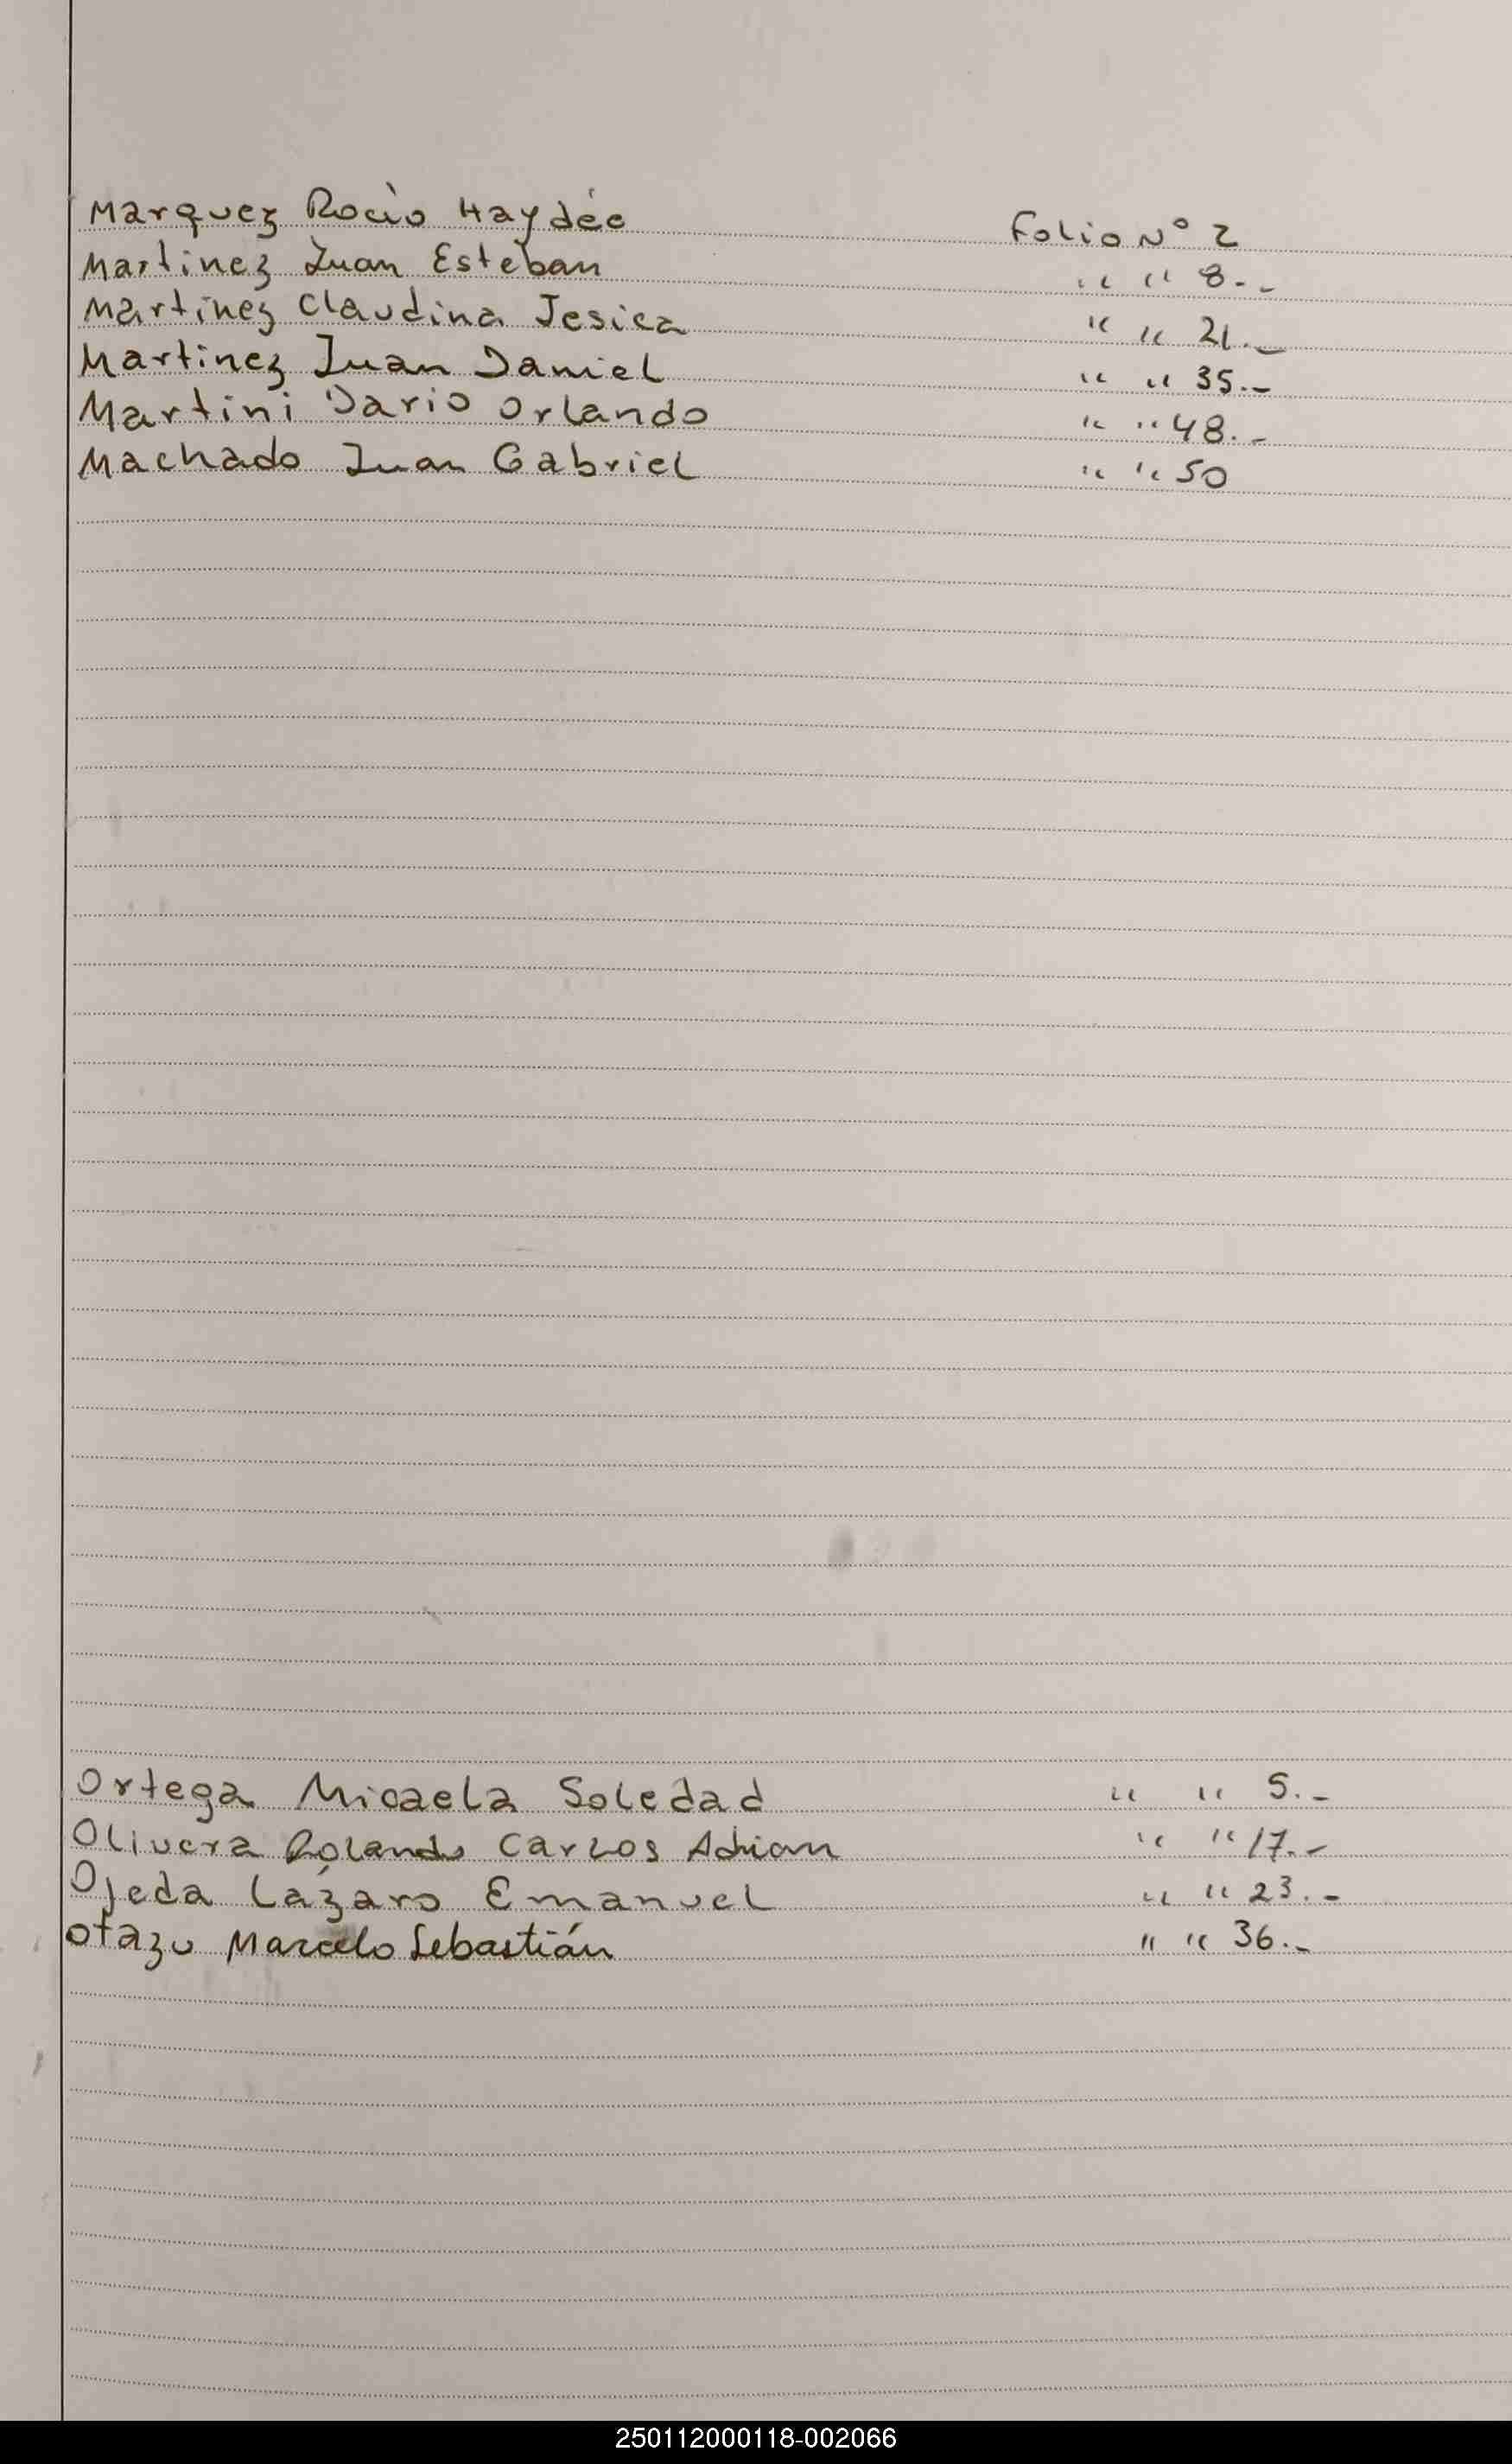 Marquez Rocìo Haydée Folio Nº 2
Martinez Juan Esteban " " 8.-
Martinez Claudina Jesica " " 21.-
Martinez Juan Daniel " " 35.-
Martini Dario Orlando " " 48.-
Machado Juan Gabriel " " 50
Ortega Micaela Soledad " " 5.-
Olivera Rolando Carlos Adrian " " 17.-
Ojeda Lázaro Emanuel " " 23.-
Otazu Marcelo Sebastián " " 36.-
250112000118-002066